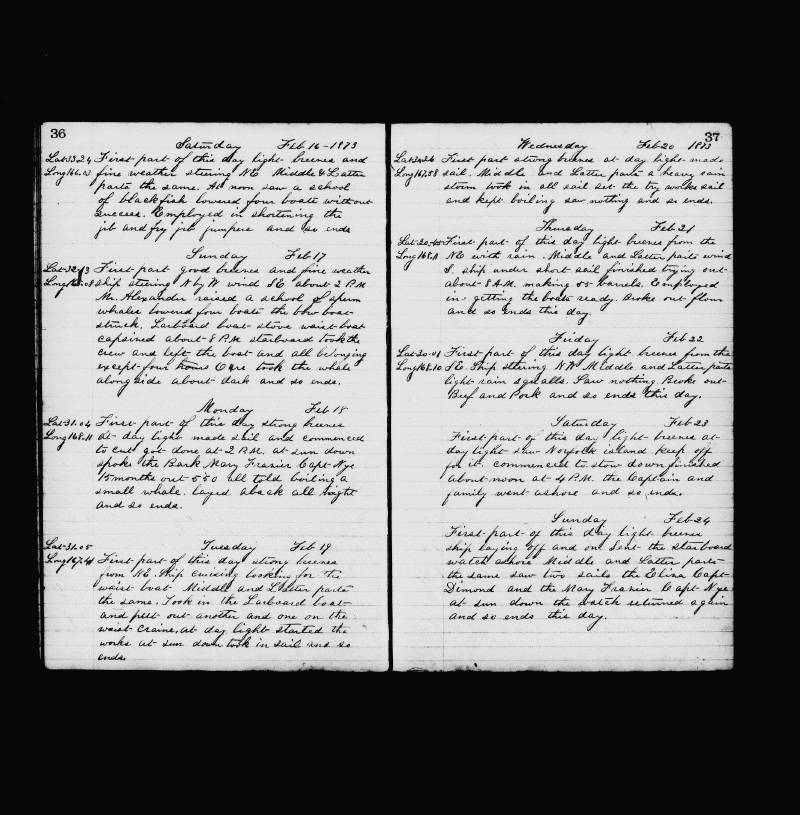 36
Saturday Feb 16-1873
Lat 33.24 First part of this day light breezes and
Long 166.03 fine weather steering NE Middle & Latter
parts the same. At noon saw a school
of blackfish lowered four boats without
success. Employed in shortening the
jib and fly jib jumpers and so ends
Sunday Feb 17
First part good breezes and fine weather
ship steering N by W wind SE about 2 P.M.
Mr. Alexander raised a school of sperm
whales lowered four boats the bow boat
struck. Larboard boat stove waist boat
capsined about 5 P.M. starboard took the
crew and left the boat and all belonging
except four irons Ours took the whale
alongside about dark and so ends.
Monday Feb 18
Lat 31.04 First part of this day strong breezes
Long 168.11 at day light made sail and commenced
to cut got done at 2 P.M. at sun down
spoke the Bark Mary Frazier Capt Nye
15 months out 550 all told boiling a
small whale. layed aback all night
and so ends.
Tuesday Feb 19
Lat 31.05 First part of this day strong breezes
Long 167.41 from NE. Ship cruising looking for the
waist boat. Middle and Latter parts
the same. Took in the Larboard boat
and fitt out another and one on the
waist crains, at day light started the
works at sun down took in sail and so
ends.
37
Wednesday Feb 20 1873
First part strong breezes at day light made
Long 167.58 sail. Middle and Latter parts a heavy rain
storm took in all sail set the try works sail
and kept boiling saw nothing and so ends.
Thursday Feb 21
First part of this day light breezes from the
NE with rain. Middle and Latter parts wind
S. ship under short sail finished trying out
about 8 A.M. making 55 barrels. Employed
in getting the boats ready. Broke out flour
and so ends this day.
Friday Feb 22
Lat 30.01 First part of this day light breezes from the
Long 168.10 SE. Ship steering NW Middle and Latter parts
light rain squalls. Saw nothing Broke out
Beef and Pork and so ends this day.
Saturday Feb 23
First part of this day light breezes at
day light saw Norfock island keep off
for it. commenced to stow down finished
about noon at 4 P.M. the Captain and
family went ashore and so ends.
Sunday Feb 24
First part of this day light breezes
ship laying off and on. Sent the starboard
watch ashore Middle and Latter parts
the same saw two sails the Eliza Capt
Dimond and the Mary Frazier Capt Nye
at sun down the watch returned again
and so ends this day.